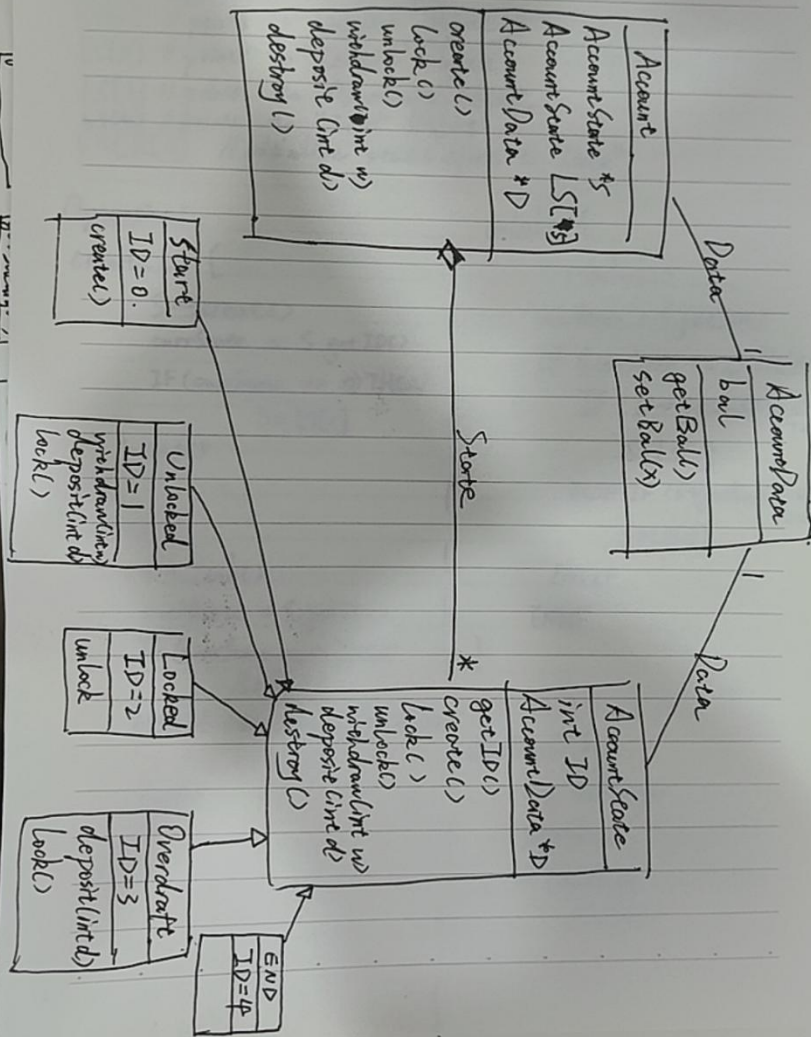 Account
AccountState *s
AccountState LS[5]
AccountData *D
create()
lock()
unlock()
withdraw(int w)
deposit(int d)
destroy()
Data
1
AccountData
bal
getBal()
setBal(x)
1
Data
State
*
AccountState
int ID
AccountData *D
getID()
create()
lock()
unlock()
withdraw(int w)
deposit(int d)
destroy()
Start
ID=0.
create()
Unlocked
ID=1
withdraw(int w)
deposit(int d)
lock()
Locked
ID=2
unlock
Overdraft
ID=3
deposit(int d)
lock()
END
ID=4